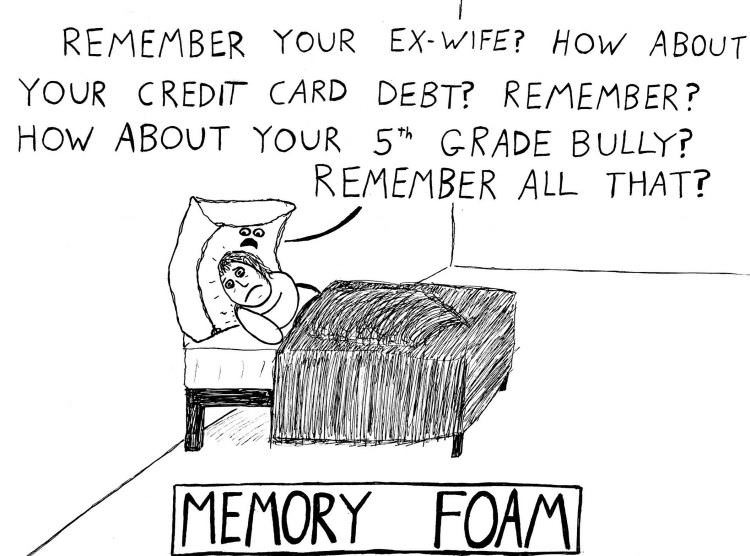 REMEMBER YOUR EX-WIFE? HOW ABOUT
YOUR CREDIT CARD DEBT? REMEMBER?
HOW ABOUT YOUR 5th GRADE BULLY?
REMEMBER ALL THAT?
MEMORY FOAM